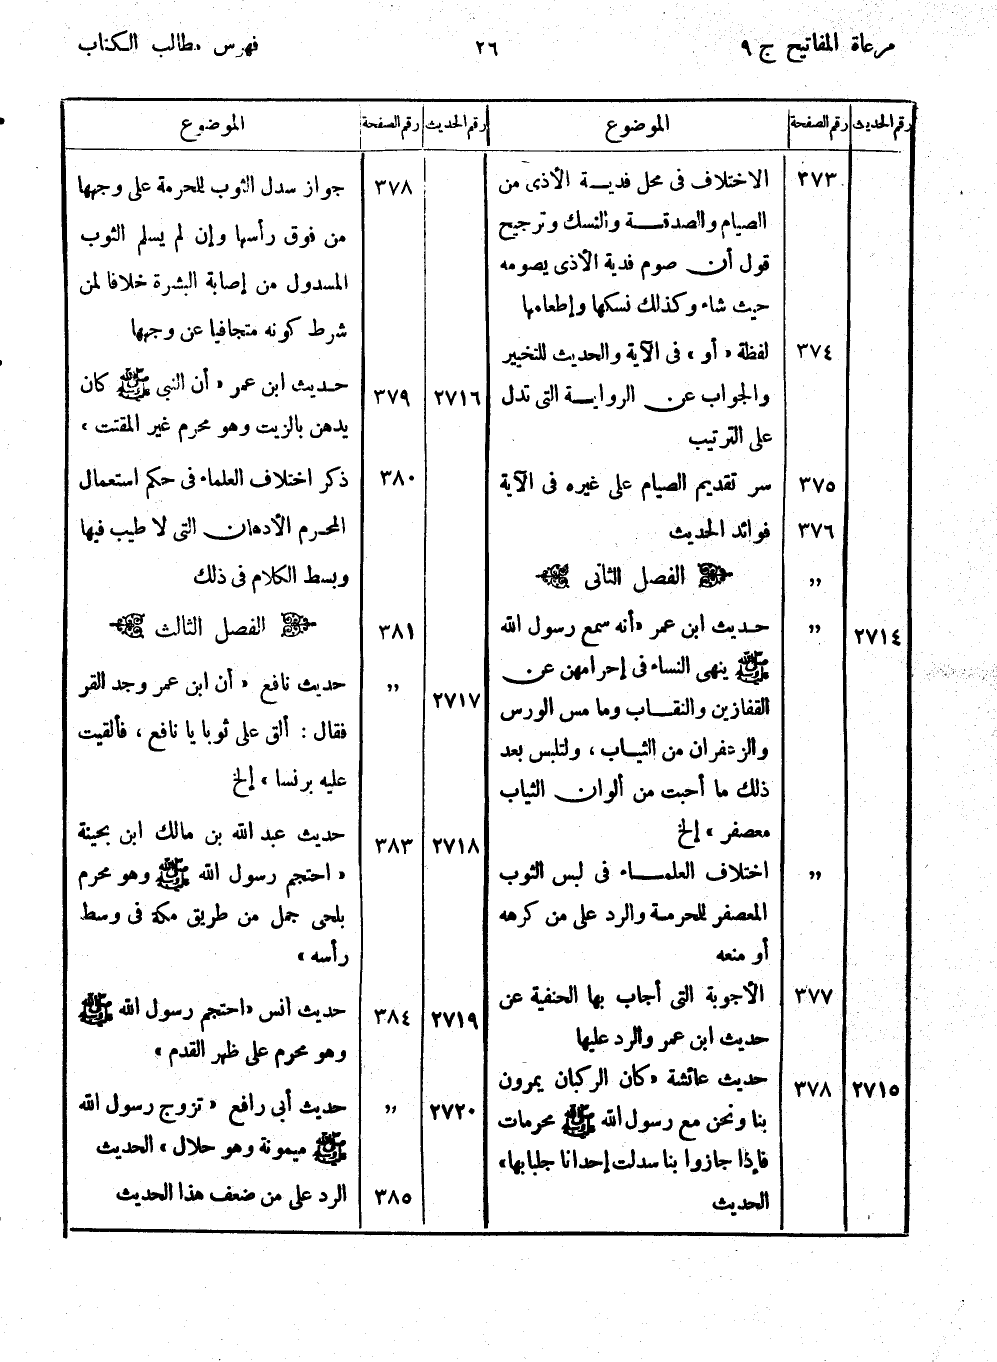 مرعاة المفاتيح ج ٩
٢٦
فهرس مطالب الكتاب
رقم الحديث رقم الصفحة الموضوع
٣٧٣ الاختلاف فى محل فدية الأذى من
الصيام والصدقة والنسك وترجيح
قول أن صوم فدية الأذى يصومه
حيث شاء وكذلك نسكها وإطعامها
٣٧٤ لفظة « أو » فى الآية والحديث للتخيير
والجواب عن الرواية التى تدل
على الترتيب
٣٧٥ سر تقديم الصيام على غيره فى الآية
٣٧٦ فوائد الحديث
,, الفصل الثانى
٢٧١٤ ,, حديث ابن عمر «أنه سمع رسول الله
ﷺ ينهى النساء فى إحرامهن عن
القفازين والنقاب وما مس الورس
والزعفران من الثياب ، ولتلبس بعد
ذلك ما أحبت من ألوان الثياب
معصفر » إلخ
,, اختلاف العلماء فى لبس الثوب
المعصفر للحرمة والرد على من كرهه
أو منعه
٣٧٧ الأجوبة التى أجاب بها الحنفية عن
حديث ابن عمر والرد عليها
٢٧١٥ ٣٧٨ حديث عائشة «كان الركبان يمرون
بنا ونحن مع رسول الله ﷺ محرمات
فإذا جازوا بنا سدلت إحدانا جلبابها»
الحديث
رقم الحديث رقم الصفحة الموضوع
٣٧٨ جواز سدل الثوب للحرمة على وجهها
من فوق رأسها وإن لم يسلم الثوب
المسدول من إصابة البشرة خلافا لمن
شرط كونه متجافيا عن وجهها
٢٧١٦ ٣٧٩ حديث ابن عمر « أن النبى ﷺ كان
يدهن بالزيت وهو محرم غير المقتت »
٣٨٠ ذكر اختلاف العلماء فى حكم استعمال
المحرم الأدهان التى لا طيب فيها
وبسط الكلام فى ذلك
٣٨١ الفصل الثالث
٢٧١٧ ,, حديث نافع « أن ابن عمر وجد القر
فقال : ألق على ثوبا يا نافع ، فألقيت
عليه برنسا » إلخ
٢٧١٨ ٣٨٣ حديث عبد الله بن مالك ابن بحينة
« احتجم رسول الله ﷺ وهو محرم
بلحى جمل من طريق مكة فى وسط
رأسه »
٢٧١٩ ٣٨٤ حديث أنس «احتجم رسول الله ﷺ
وهو محرم على ظهر القدم »
٢٧٢٠ ,, حديث أبى رافع « تزوج رسول الله
ﷺ ميمونة وهو حلال » الحديث
٣٨٥ الرد على من ضعف هذا الحديث